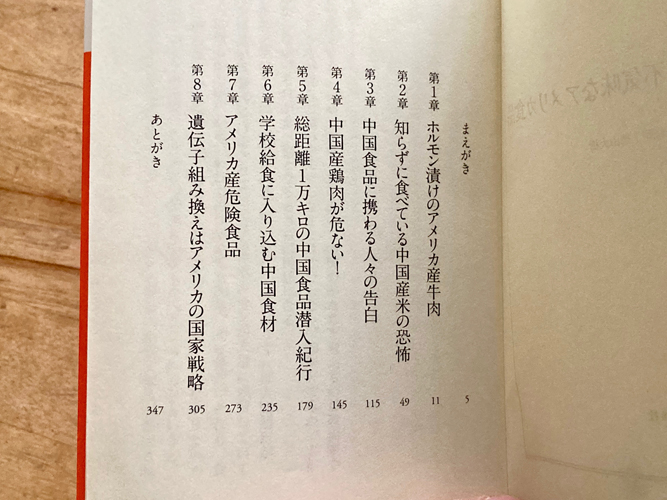 まえがき 5
第1章 ホルモン漬けのアメリカ産牛肉 11
第2章 知らずに食べている中国産米の恐怖 49
第3章 中国食品に携わる人々の告白 115
第4章 中国産鶏肉が危ない！ 145
第5章 総距離1万キロの中国食品潜入紀行 179
第6章 学校給食に入り込む中国食材 235
第7章 アメリカ産危険食品 273
第8章 遺伝子組み換えはアメリカの国家戦略 305
あとがき 347